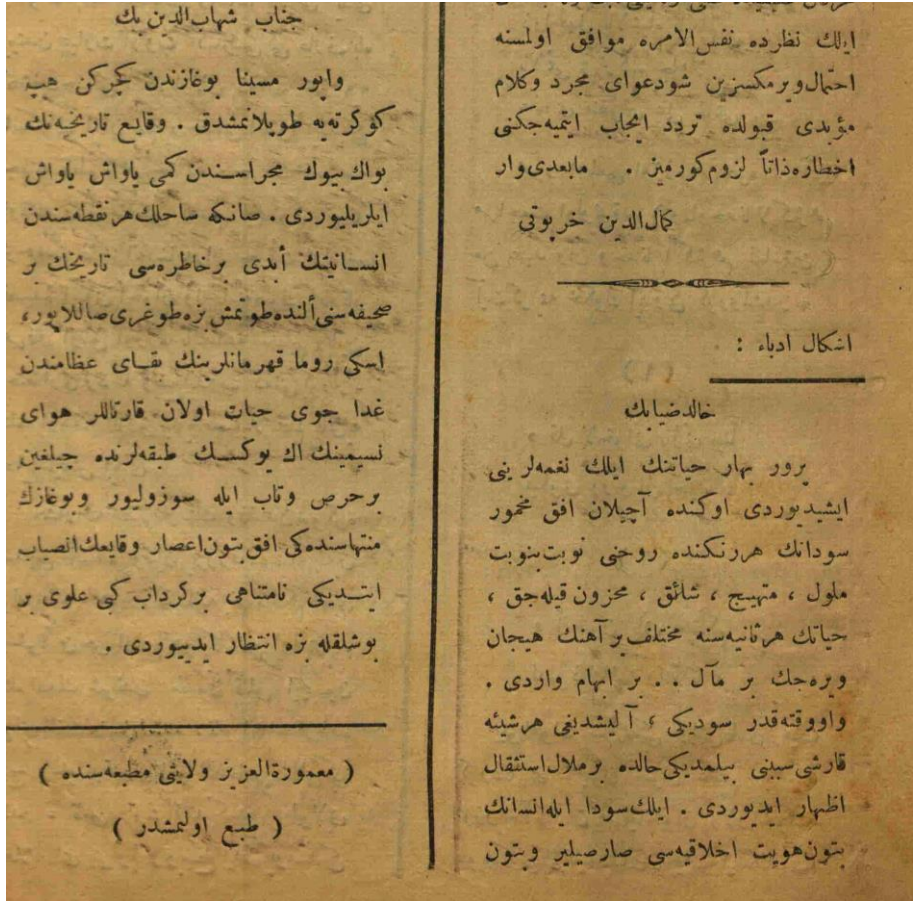 ايلك نظرده نفس‌الامره موافق اولمسنه
احتمال‌ويرمكسزين شودعواى مجرد وكلام
مؤيدى قبولده تردد ايجاب ايتميه‌جكنى
اخطاره‌ذاتاً لزوم‌كورميز . مابعدى‌وار
كمال‌الدين خرپوتى
اشكال ادباء :
خالدضيابك
پرور بهار حياتنك ايلك نغمه‌لرينى
ايشيديوردى اوكنده آچيلان افق مخمور
سودانك هررنكنده روحنى نوبت‌بنوبت
ملول ، متهيج ، شائق ، محزون قيله‌جق ،
حياتك هرثانيه‌سنه مختلف‌برآهنك هيجان
ويره‌جك بر مآل . . بر ابهام واردى .
واووقته‌قدر سوديكى ، آليشديغى هرشيئه
قارشى‌سببنى بيلمديكى‌حالده برملال‌استثقال
اظهار ايديوردى . ايلك‌سودا ايله‌انسانك
بتون‌هويت اخلاقيه‌سى صارصيلير وبتون
جناب شهاب‌الدين بك
واپور مسينا بوغازندن كچركن هپ
كوكرته‌يه طوپلانمشدق . وقايع تاريخيه‌نك
بواك بيوك مجراسندن كمى ياواش ياواش
ايلريليوردى . صانكه ساحلك‌هرنقطه‌سندن
انسانيتك أبدى برخاطره‌سى تاريخك بر
صحيفه‌سنى‌ألنده‌طوتمش بزه‌طوغرى‌صاللايور،
اسكى روما قهرمانلرينك بقاى عظامندن
غدا جوى حيات اولان قارتاللر هواى
نسيمينك اك يوكسك طبقه‌لرنده چيلغين
برحرص وتاب ايله سوزوليور وبوغازك
منتهاسنده‌كى افق‌بتون‌اعصار وقايعك‌انصباب
ايتديكى نامتناهى بركرداب كبى علوى بر
بوشلقله بزه انتظار ايدييوردى .
( معمورةالعزيز ولايتى مطبعه‌سنده )
( طبع اولنمشدر )